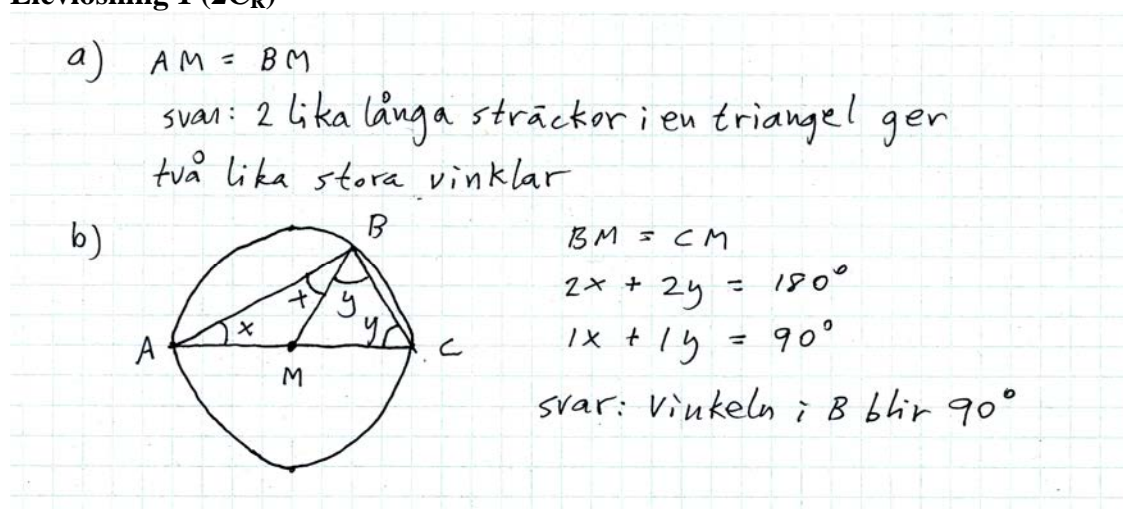 Elevlösning 1 (2CR)
a) AM = BM
svar: 2 lika långa sträckor i en triangel ger
två lika stora vinklar
b)
B
x y
A x y C
M
BM = CM
2x + 2y = 180°
1x + 1y = 90°
svar: Vinkeln i B blir 90°